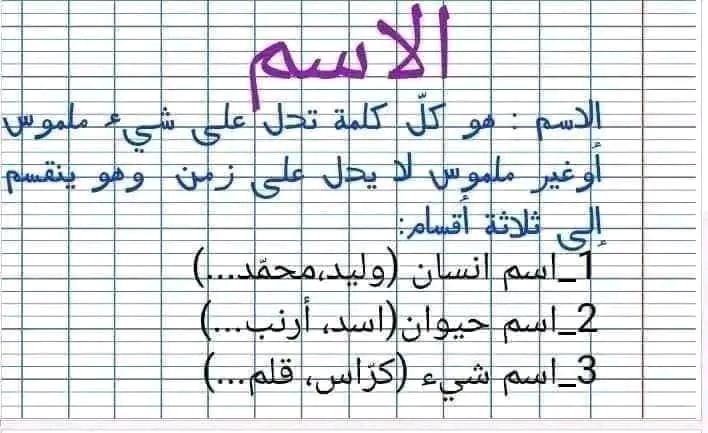 الاسم
الاسم : هو كلّ كلمة تدل على شيء ملموس
أوغير ملموس لا يدل على زمن وهو ينقسم
إلى ثلاثة أقسام:
1_اسم انسان (وليد،محمّد...)
2_اسم حيوان(اسد، أرنب...)
3_اسم شيء (كرّاس، قلم...)